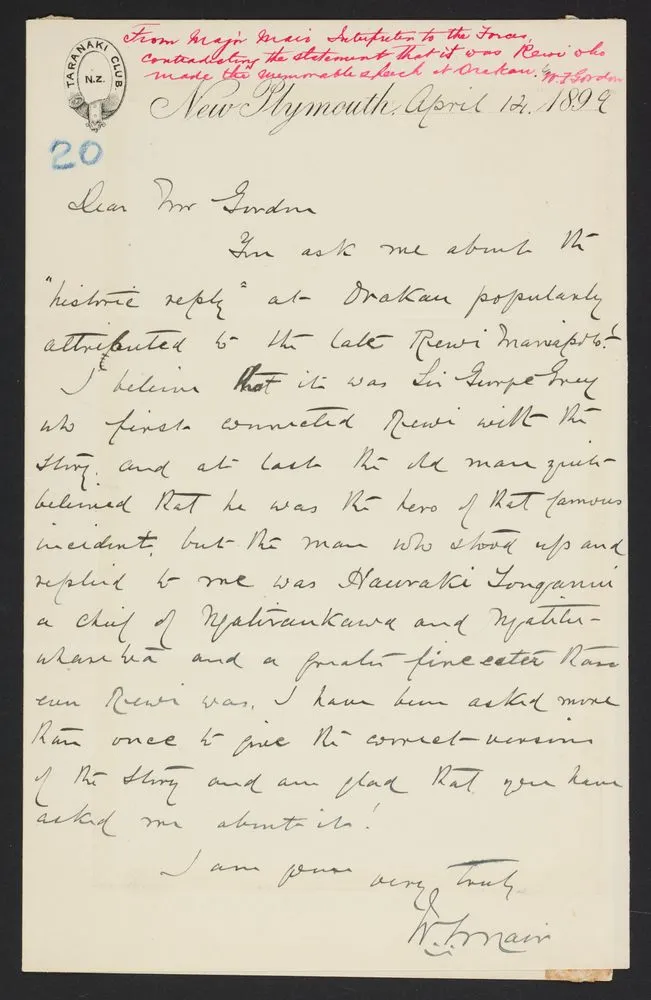 From Major Mair Interpreter to the Forces,
contradicting the statement that it was Rewi who
made the memorable speech at Orakau. W.F. Gordon
TARANAKI CLUB.
N.Z.
New Plymouth, April 12. 1899
20
Dear Mr Gordon
You ask me about the
"historic reply" at Orakau popularly
attributed to the late Rewi Maniapoto!
I believe that it was Sir George Grey
who first connected Rewi with the
story, and at last the old man quite
believed that he was the hero of that famous
incident, but the man who stood up and
replied to me was Hauraki Tonganui
a chief of Ngatiraukawa and Ngatitu-
wharetoa and a greater fire eater than
even Rewi was. I have been asked more
than once to give the correct version
of the story and am glad that you have
asked me about it!
I am yours very truly
W. G. Mair